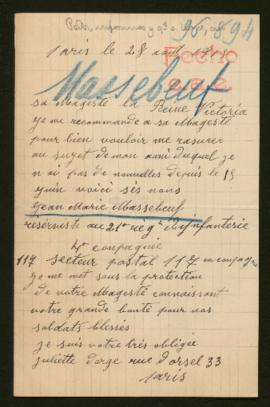 96.894
Paris le 28 août 1915
Fecho
Massebeuf
sa Magesté la Reine Victoria
je me recommande a sa Magesté
pour bien vouloir me rasurer
au sujet de mon ami duquel je
n ai pas de nouvelles depuis le 15
juin voici sés nons
Jean Marie Massebeuf
reserviste au 21e rég d'infanterie
4e compagnie
117 secteur postal 117 en compagne
je me met sous la protection
de votre Magesté connaissant
votre grande bonté pour nos
soldats blessés
je suis votre très obligée
juliette Dorge rue d'orsel 33
Paris